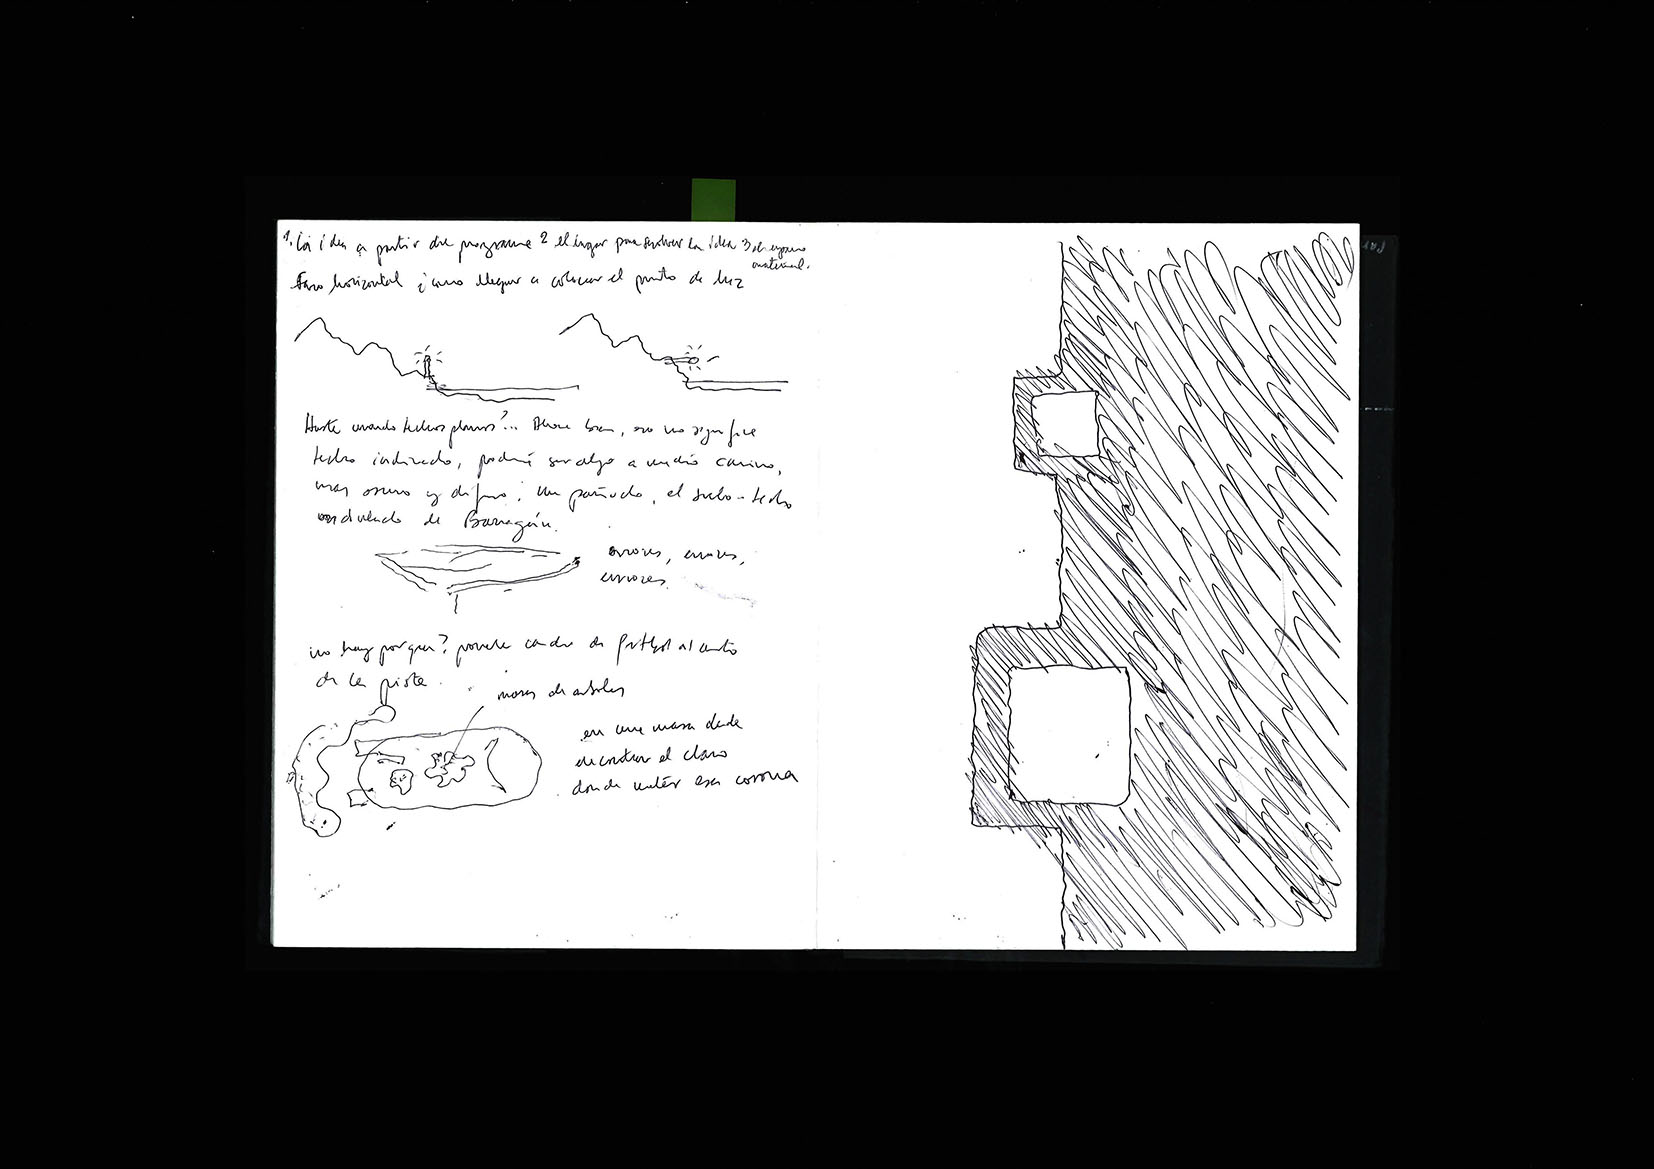 1. La idea a partir del programa 2 el lugar para la idea 3
material.
Faro horizontal ¿como llegar a colocar el punto de luz
Hasta cuando techos planos?... Ahora bien, eso no significa
techo inclinado, podría ser algo a medio camino,
mas oscuro y difuso; un pañuelo, el techo
ondulado de Barragán.
errores, errores,
errores.
no hay porque? ponerle de futbol al
de la pista.
masas de arboles
en una masa
encontrar el claro
donde meter esa corona